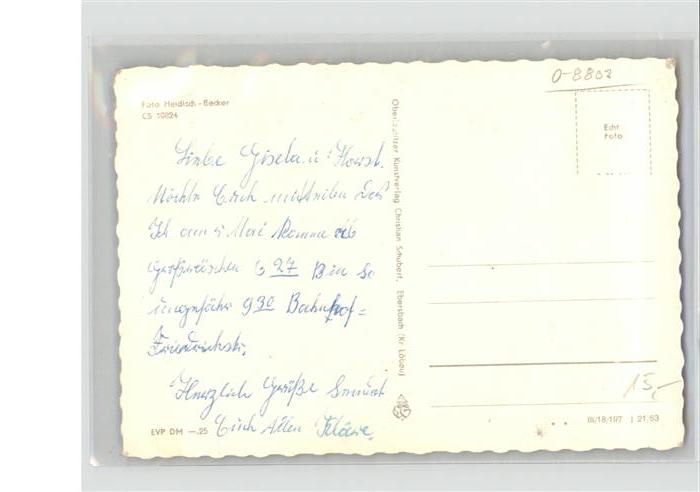 O-8802
Foto Heidisch - Becker
CS 10824
Echt
Foto
Liebe Gisela u. Horst.
Möchte Euch mitteilen das
Ich am 5 Mai komme ab
Großräschen 6 27 Bin so
ungefähr 9 30 Bahnhof=
Friedrichstr.
Herzlich Grüße Sendet
Euch Allen
Oberlausitzer Kunstverlag Christian Schubert, Ebersbach (Kr Löbau)
15,-
EVP DM —.25
III/18/197 | 21/53